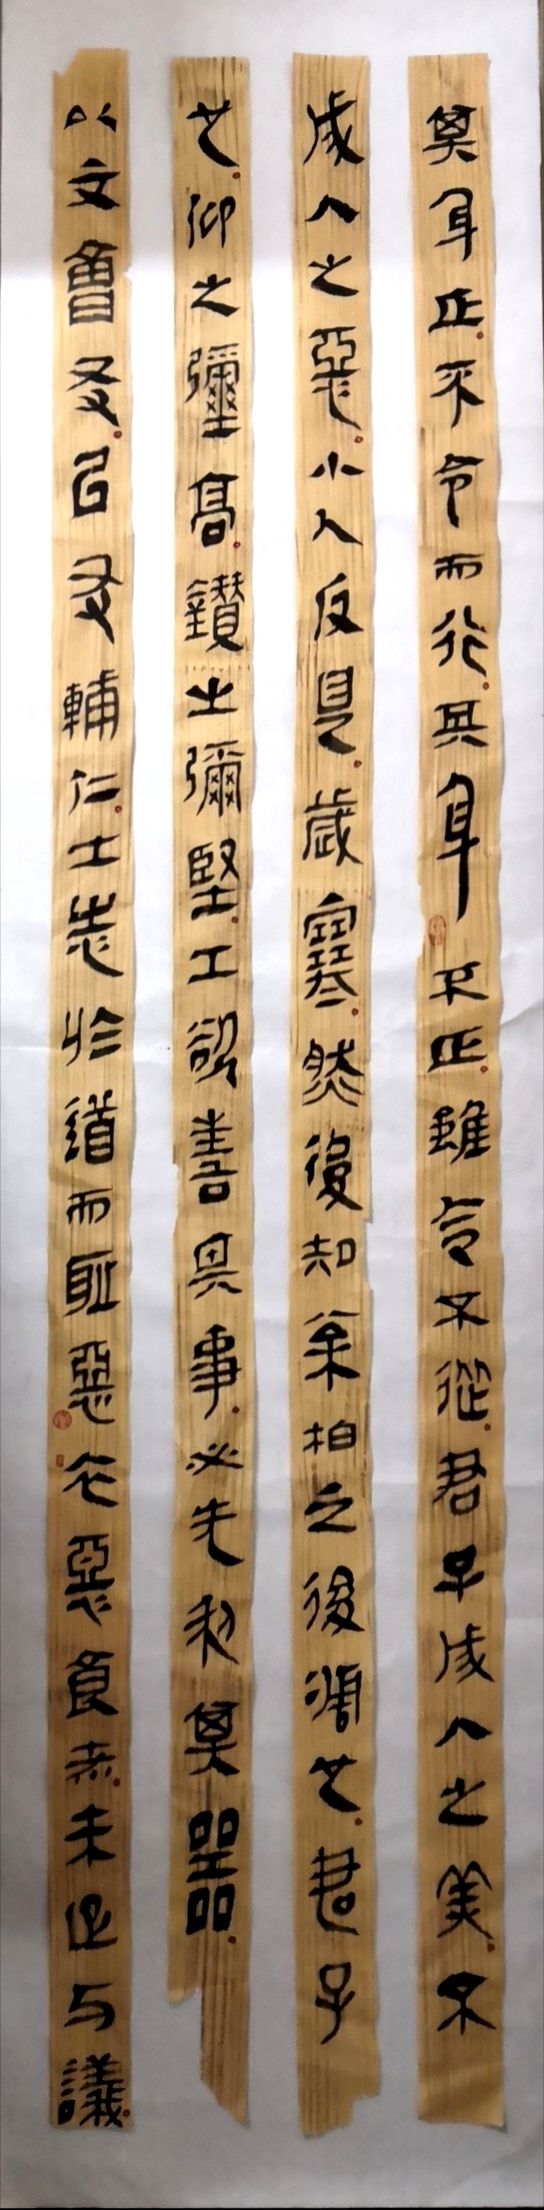 其身正不令而行其身不正雖令不從君子成人之美不
成人之惡小人反是歲寒然後知松柏之後凋也君子
也仰之彌高鑽之彌堅工欲善其事必先利其器
以文會友以友輔仁士志於道而恥惡衣惡食者未足与議